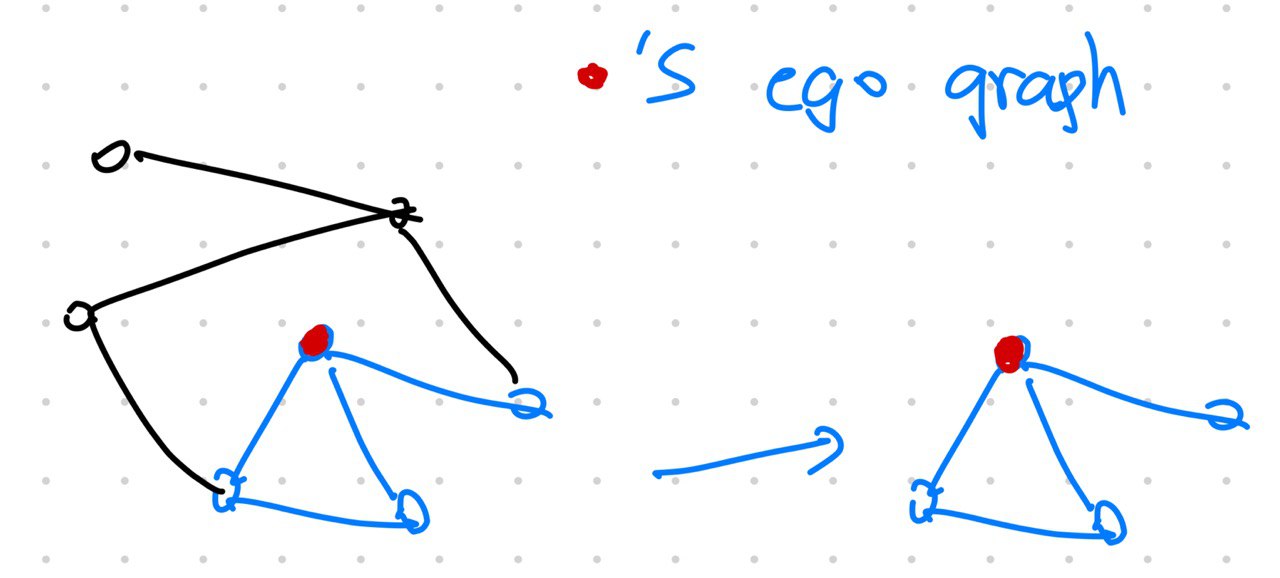 's ego graph